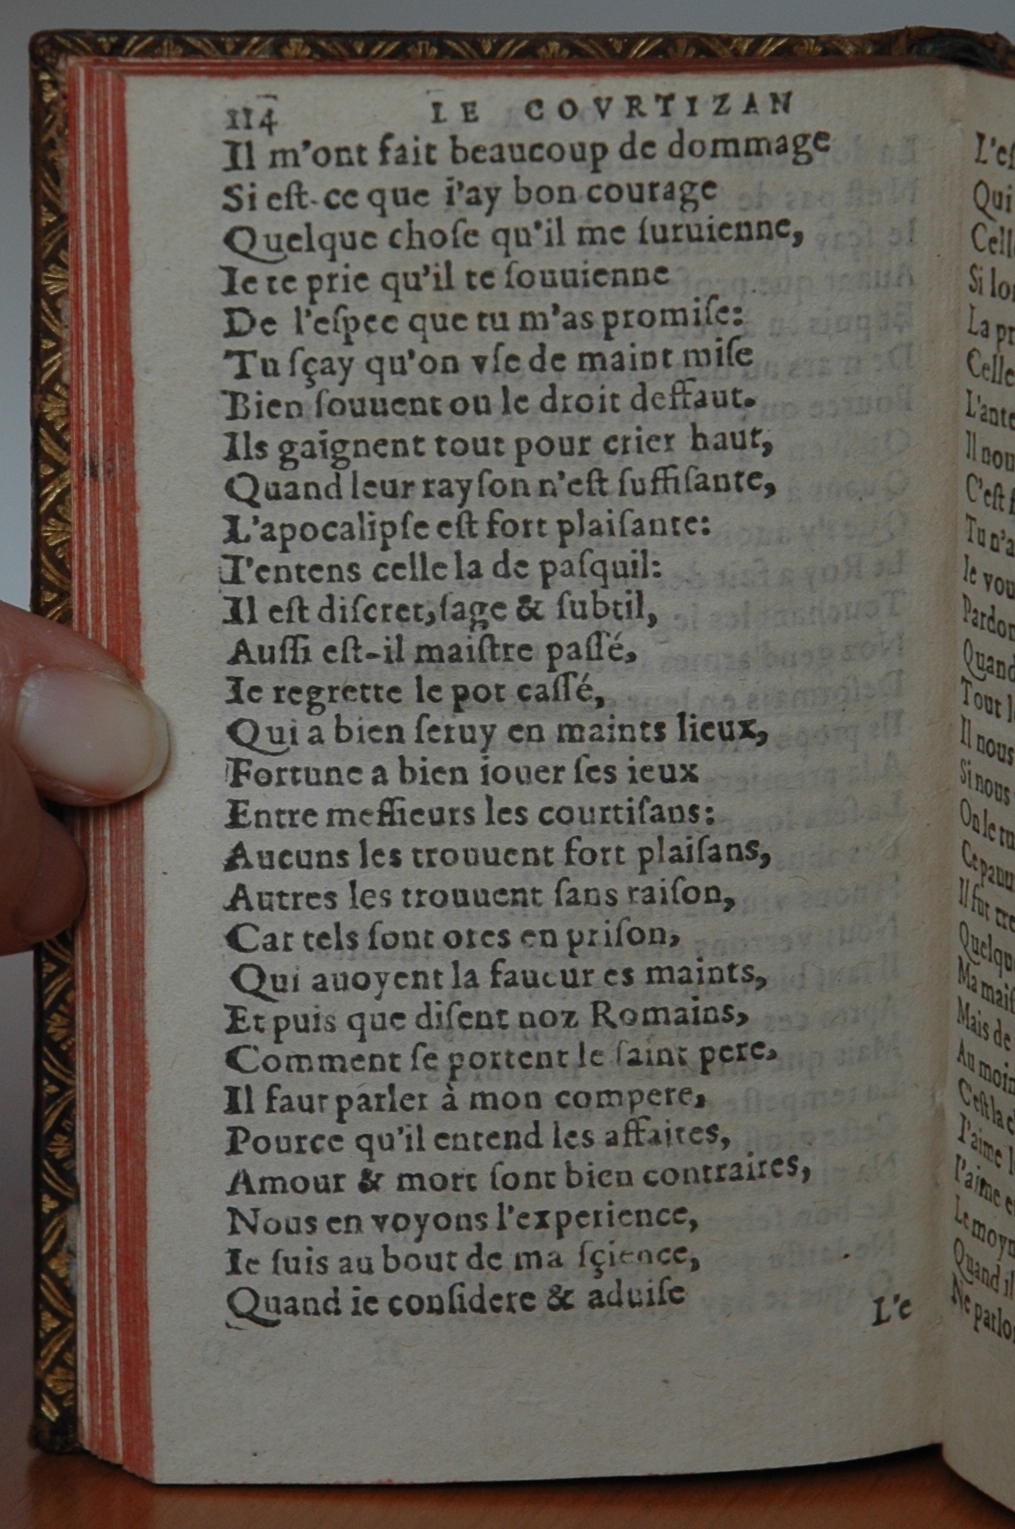 114 LE COVRTIZAN
Il m'ont fait beaucoup de dommage
Si eſt-ce que i'ay bon courage
Quelque choſe qu'il me ſuruienne,
Ie te prie qu'il te ſouuienne
De l'eſpee que tu m'as promiſe:
Tu ſçay qu'on vſe de maint miſe
Bien ſouuent ou le droit deffaut.
Ils gaignent tout pour crier haut,
Quand leur rayſon n'eſt ſuffiſante,
L'apocalipſe eſt fort plaiſante:
I'entens celle la de paſquil:
Il eſt diſcret, ſage & ſubtil,
Auſſi eſt-il maiſtre paſſé,
Ie regrette le pot caſſé,
Qui a bien ſeruy en maints lieux,
Fortune a bien iouer ſes ieux
Entre meſſieurs les courtiſans:
Aucuns les trouuent fort plaiſans,
Autres les trouuent ſans raiſon,
Car tels ſont ores en priſon,
Qui auoyent la faueur es maints,
Et puis que diſent noz Romains,
Comment ſe portent le ſaint pere,
Il faut parler à mon compere,
Pource qu'il entend les affaires,
Amour & mort ſont bien contraires,
Nous en voyons l'experience,
Ie ſuis au bout de ma ſçience,
Quand ie conſidere & aduiſe
L'e
Qui
Si
La
Celle
Il nou
C'eſt
Tu n'a
Ie vou
Pardon
Quand
Tout
Il nous
Si nous
On le
Il fut
Quelque
Ma
Mais de
Au moin
C'eſt la
I'aime
I'aime
Le moyn
Quand il
Ne parlo